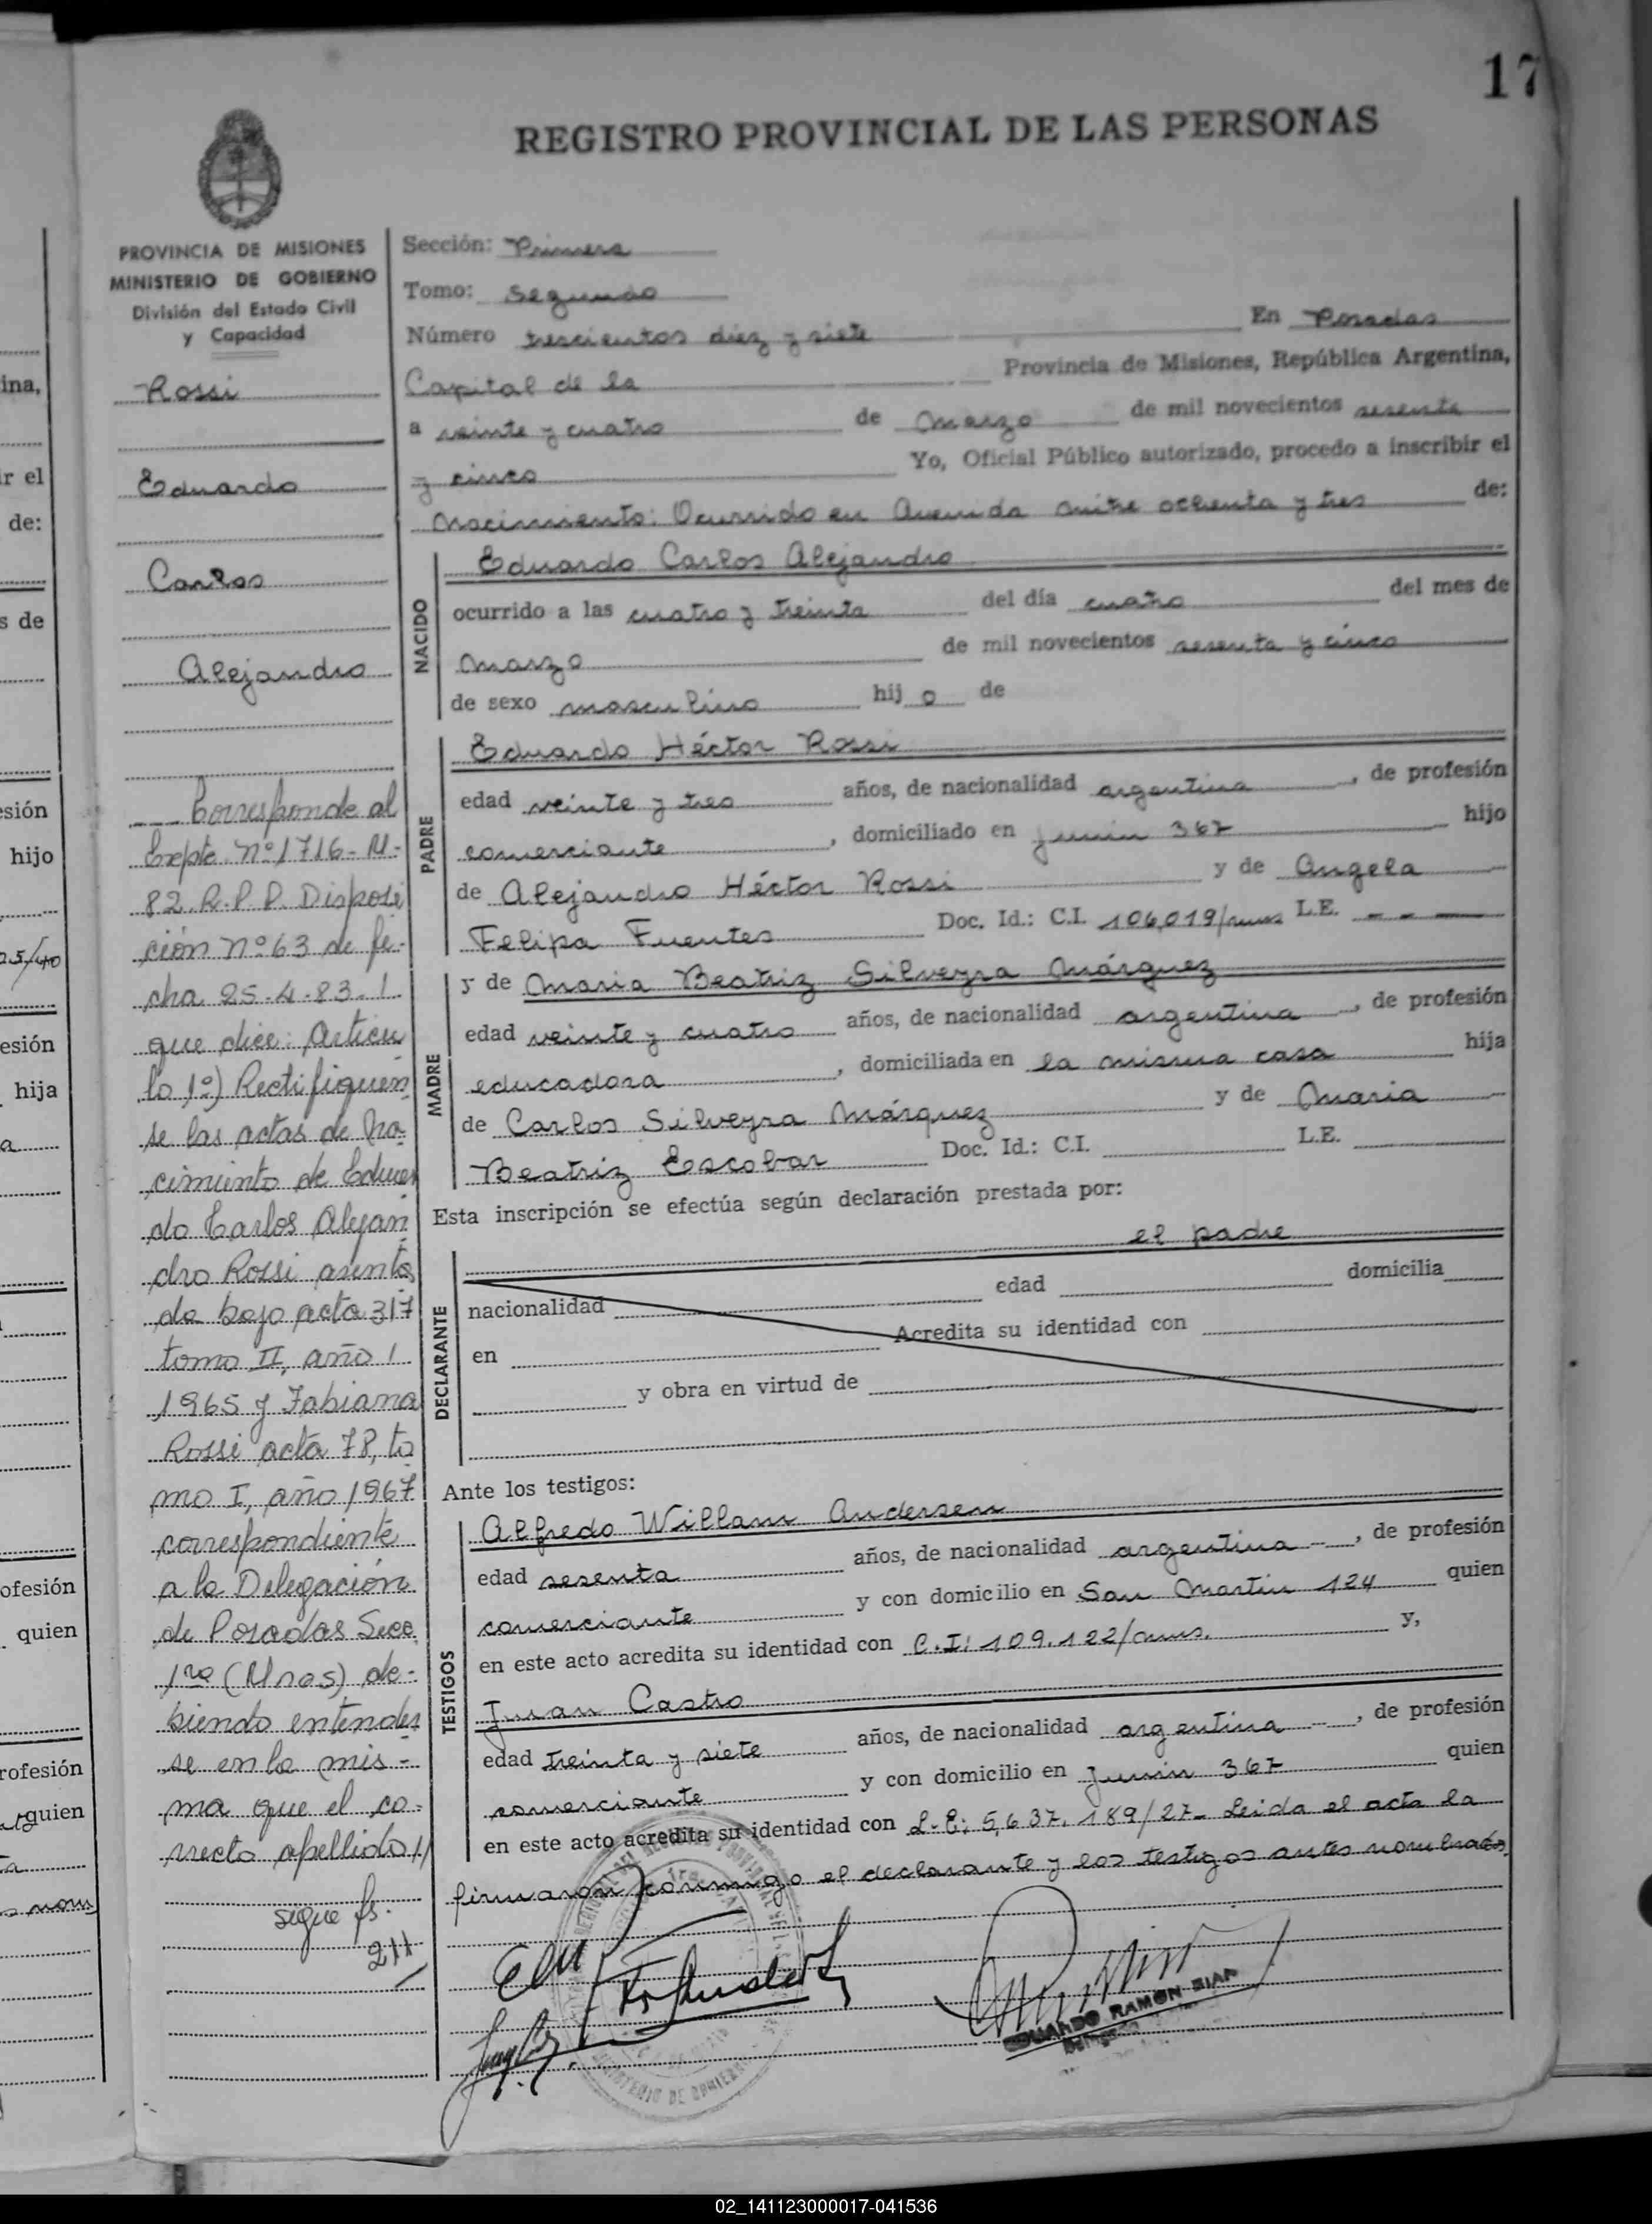 17
REGISTRO PROVINCIAL DE LAS PERSONAS
PROVINCIA DE MISIONES
MINISTERIO DE GOBIERNO
División del Estado Civil
y Capacidad
Rossi
Eduardo
Carlos
Alejandro
Corresponde al
Expte. Nº 1716-M-
82. R.P.P. Disposi
ción nº 63 de fe-
cha 25-4-83.
que dice: Articu
lo 1º) Rectifiquen
se las actas de Na-
cimiento de Eduar
do Carlos Alejan
dro Rossi asenta
da bajo acta 317
tomo II, año
1965 y Fabiana
Rossi acta 78, to
mo I, año 1967
correspondiente
a la Delegación
de Posadas Secc.
1ra (Mnes) de-
biendo entender
se en la mis-
ma que el co-
rrecto apellido
sigue fs.
211
Sección: Primera
Tomo: Segundo
Número trescientos diez y siete En Posadas
Capital de la Provincia de Misiones, República Argentina,
a veinte y cuatro de Marzo de mil novecientos sesenta
y cinco Yo, Oficial Público autorizado, procedo a inscribir el
Nacimiento: Ocurrido en Avenida Mitre ochenta y tres de:
NACIDO
Eduardo Carlos Alejandro
ocurrido a las cuatro y treinta del día cuatro del mes de
Marzo de mil novecientos sesenta y cinco
de sexo masculino hijo de
PADRE
Eduardo Héctor Rossi
edad veinte y tres años, de nacionalidad argentina, de profesión
comerciante, domiciliado en Junin 367 hijo
de Alejandro Héctor Rossi y de Angela
Felipa Fuentes Doc. Id.: C.I. 106,019/mnes L.E. - - -
MADRE
y de Maria Beatriz Silveyra Márquez
edad veinte y cuatro años, de nacionalidad argentina, de profesión
educadora, domiciliada en la misma casa hija
de Carlos Silveyra Márquez y de Maria
Beatriz Escobar Doc. Id.: C.I. L.E.
Esta inscripción se efectúa según declaración prestada por:
el padre
DECLARANTE
nacionalidad edad domicilia
en Acredita su identidad con
y obra en virtud de
Ante los testigos:
TESTIGOS
Alfredo Willam Andersen
edad sesenta años, de nacionalidad argentina, de profesión
comerciante y con domicilio en San Martin 124 quien
en este acto acredita su identidad con C.I: 109.122/mns. y,
Juan Castro
edad treinta y siete años, de nacionalidad argentina, de profesión
comerciante y con domicilio en Junin 367 quien
en este acto acredita su identidad con L.E: 5,637.189/27- Leida el acta la
firmaron conmigo el declarante y los testigos antes nombrados
EDUARDO RAMON
MINISTERIO DE GOBIERNO
ina,
ir el
de:
s de
esión
hijo
esión
hija
ofesión
quien
rofesión
quien
02_141123000017-041536